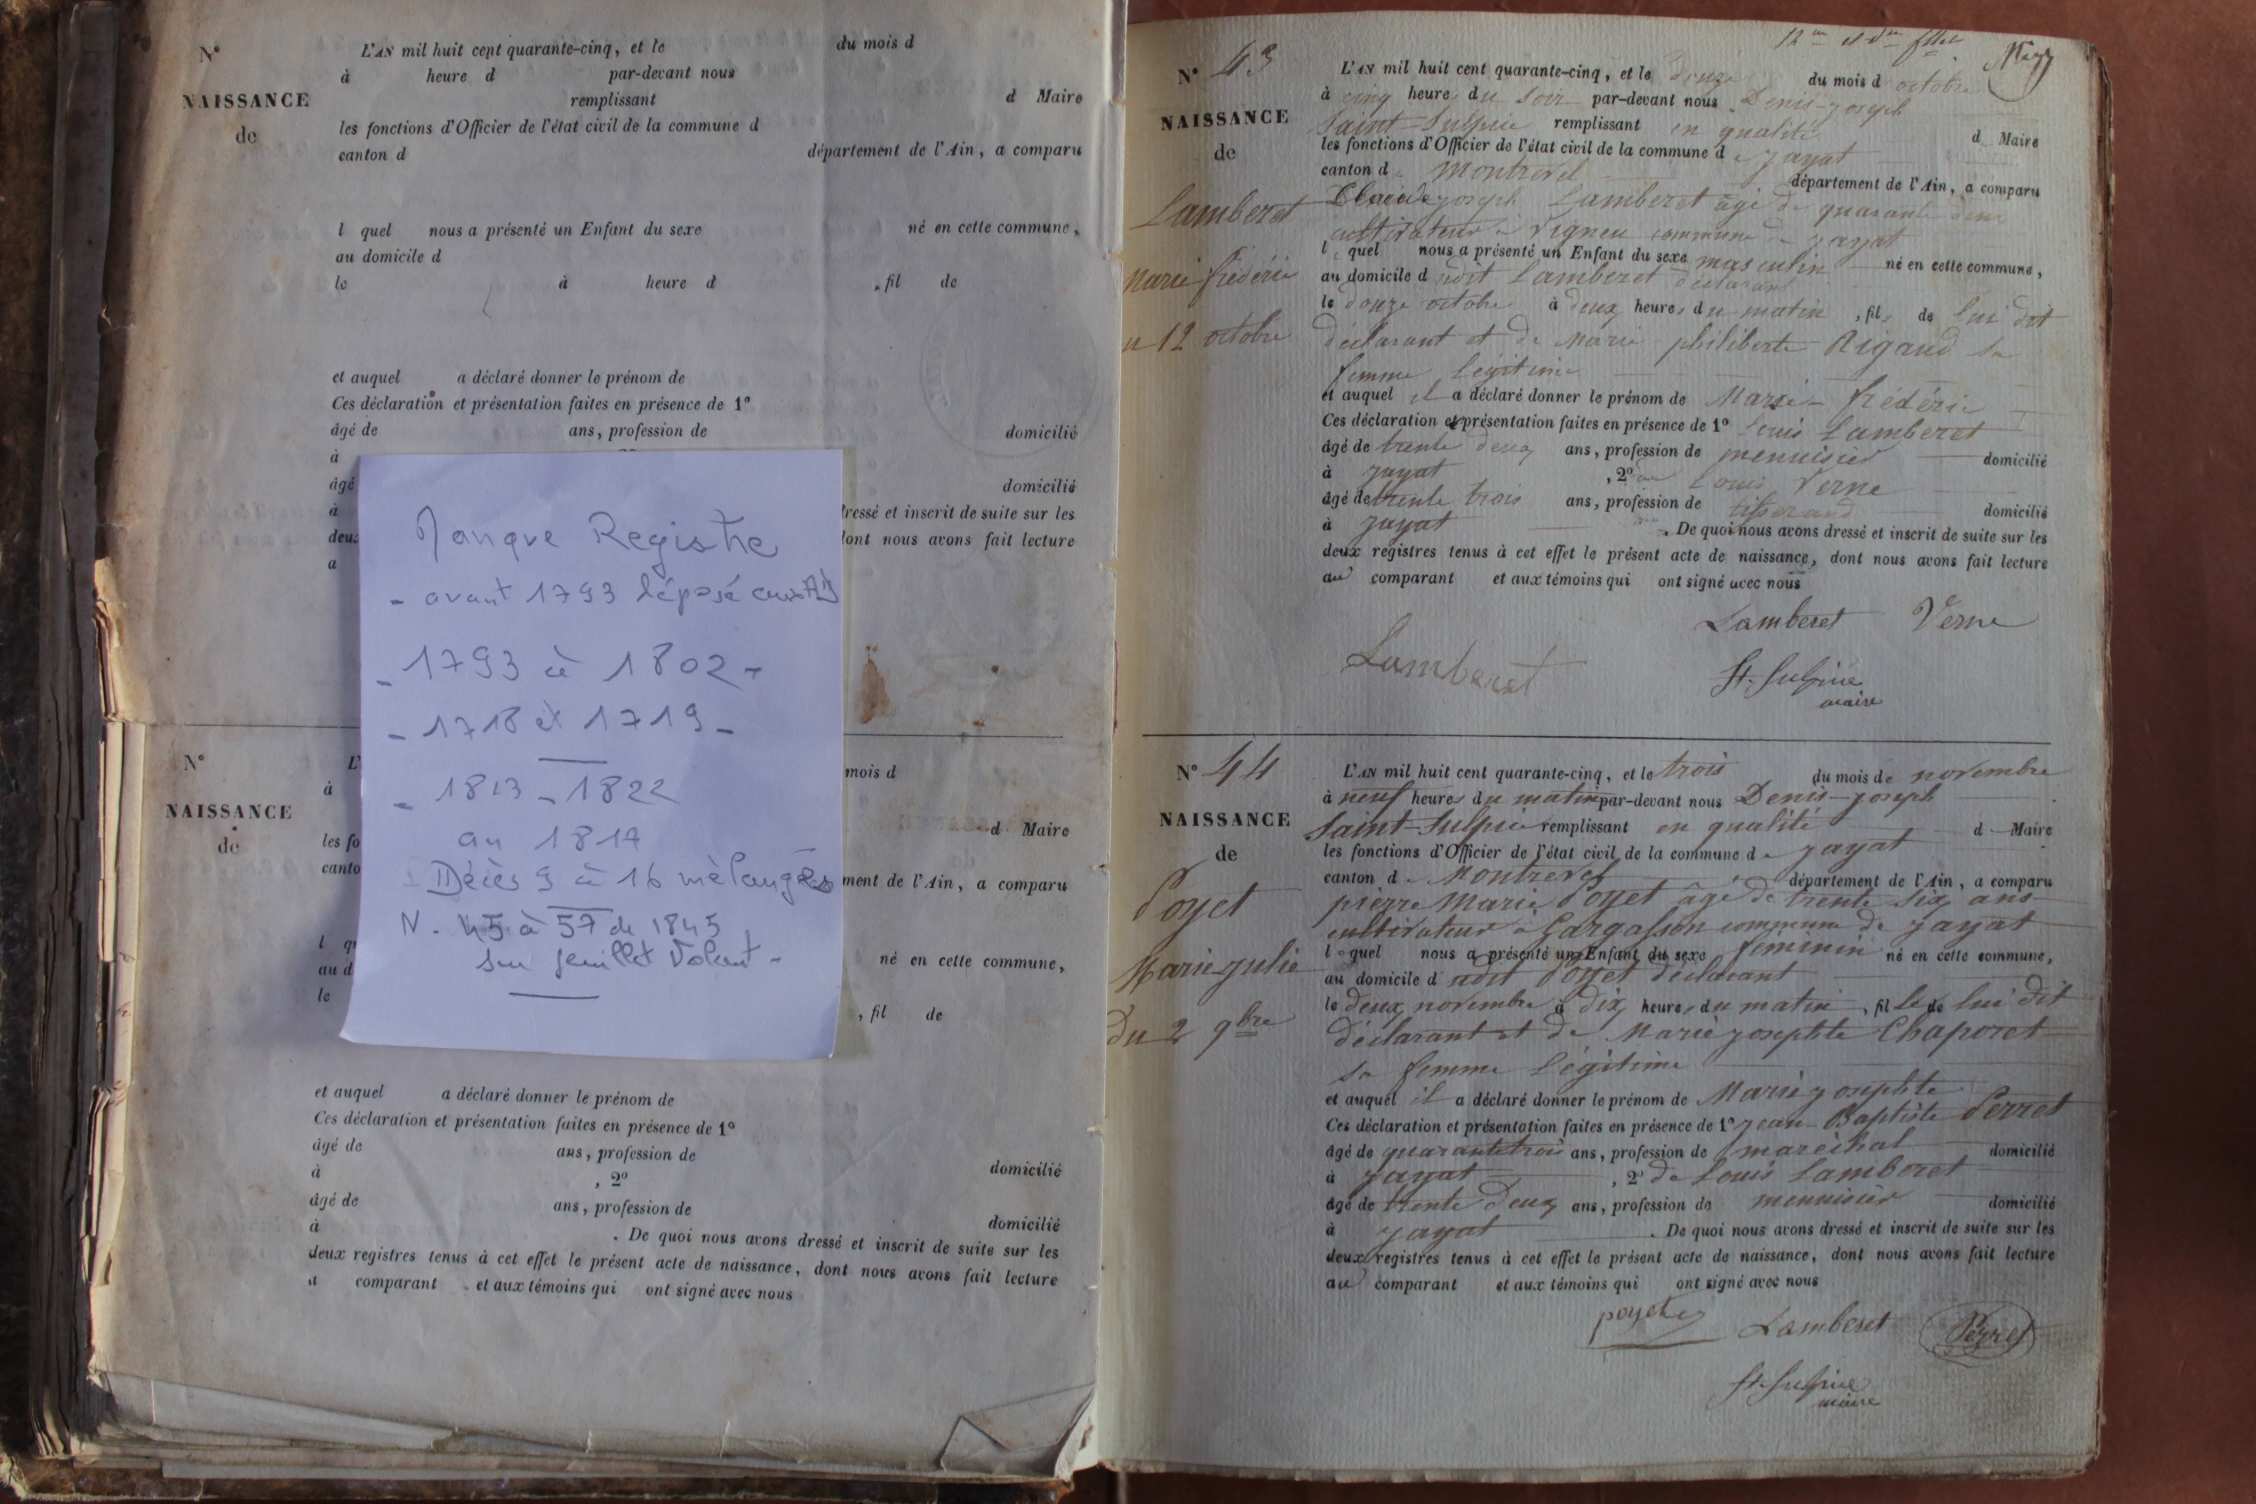 N°
NAISSANCE
de
L'AN mil huit cent quarante-cinq, et le du mois d
à heure d par-devant nous
remplissant d Maire
les fonctions d'Officier de l'état civil de la commune d
canton d département de l'Ain, a comparu
l quel nous a présenté un Enfant du sexe né en cette commune,
au domicile d
le à heure d , fil de
et auquel a déclaré donner le prénom de
Ces déclaration et présentation faites en présence de 1°
âgé de ans, profession de domicilié
à
âgé domicilié
à dressé et inscrit de suite sur les
deux dont nous avons fait lecture
a
Manque Registre
- avant 1793 déposé aux AD
- 1793 à 1802 -
- 1718 et 1719 -
- 1813 - 1822
au 1817
Décès 9 à 16 mélangés
N. 45 à 57 de 1845
sur feuillet Volant -
N°
NAISSANCE
de
L' mois d
à
d Maire
les fo
canto ment de l'Ain, a comparu
l qu
né en cette commune,
au d
le , fil de
et auquel a déclaré donner le prénom de
Ces déclaration et présentation faites en présence de 1°
âgé de ans, profession de
à , 2° domicilié
âgé de ans, profession de
à domicilié
. De quoi nous avons dressé et inscrit de suite sur les
deux registres tenus à cet effet le présent acte de naissance, dont nous avons fait lecture
a comparant et aux témoins qui ont signé avec nous
N° 43
NAISSANCE
de
Lamberet
Marie frédéric
du 12 octobre
L'AN mil huit cent quarante-cinq, et le douze du mois d octobre
à cinq heures du soir par-devant nous Denis-joseph
Saint-Sulpice remplissant en qualité d Maire
les fonctions d'Officier de l'état civil de la commune de jayat
canton de Montrevel département de l'Ain, a comparu
Claude joseph Lamberet âgé de quarante deux
cultivateur à Vigneu commune de jayat
lequel nous a présenté un Enfant du sexe masculin né en cette commune,
au domicile d udit Lamberet déclarant
le douze octobre à deux heures du matin, fils de lui dit
déclarant et de Marie philiberte Rigaud sa
femme légitime
et auquel il a déclaré donner le prénom de Marie-frédéric
Ces déclaration et présentation faites en présence de 1° Louis Lamberet
âgé de trente deux ans, profession de menuisier domicilié
à jayat , 2° Louis Verne
âgé de trente trois ans, profession de tisserand domicilié
à jayat . De quoi nous avons dressé et inscrit de suite sur les
deux registres tenus à cet effet le présent acte de naissance, dont nous avons fait lecture
au comparant et aux témoins qui ont signé avec nous
Lamberet Verne
Lamberet St. Sulpice
maire
N° 44
NAISSANCE
de
Poyet
Marie julie
Du 2 9bre
L'AN mil huit cent quarante-cinq, et le trois du mois de novembre
à neuf heures du matin par-devant nous Denis-joseph
Saint-Sulpice remplissant en qualité d Maire
les fonctions d'Officier de l'état civil de la commune de jayat
canton de Montrevel département de l'Ain, a comparu
pierre Marie Poyet âgé de trente six ans
cultivateur à Gargasson commune de jayat
lequel nous a présenté un Enfant du sexe féminin né en cette commune,
au domicile d udit Poyet déclarant
le deux novembre à dix heures du matin, fille de lui dit
déclarant et de Marie josephte Chaporet
sa femme légitime
et auquel il a déclaré donner le prénom de Marie josephte
Ces déclaration et présentation faites en présence de 1° jean-Baptiste Perret
âgé de quarante trois ans, profession de maréchal domicilié
à jayat , 2° de Louis Lamberet
âgé de trente deux ans, profession de menuisier domicilié
à jayat . De quoi nous avons dressé et inscrit de suite sur les
deux registres tenus à cet effet le présent acte de naissance, dont nous avons fait lecture
au comparant et aux témoins qui ont signé avec nous
poyet Lamberet Perret
St. Sulpice
maire